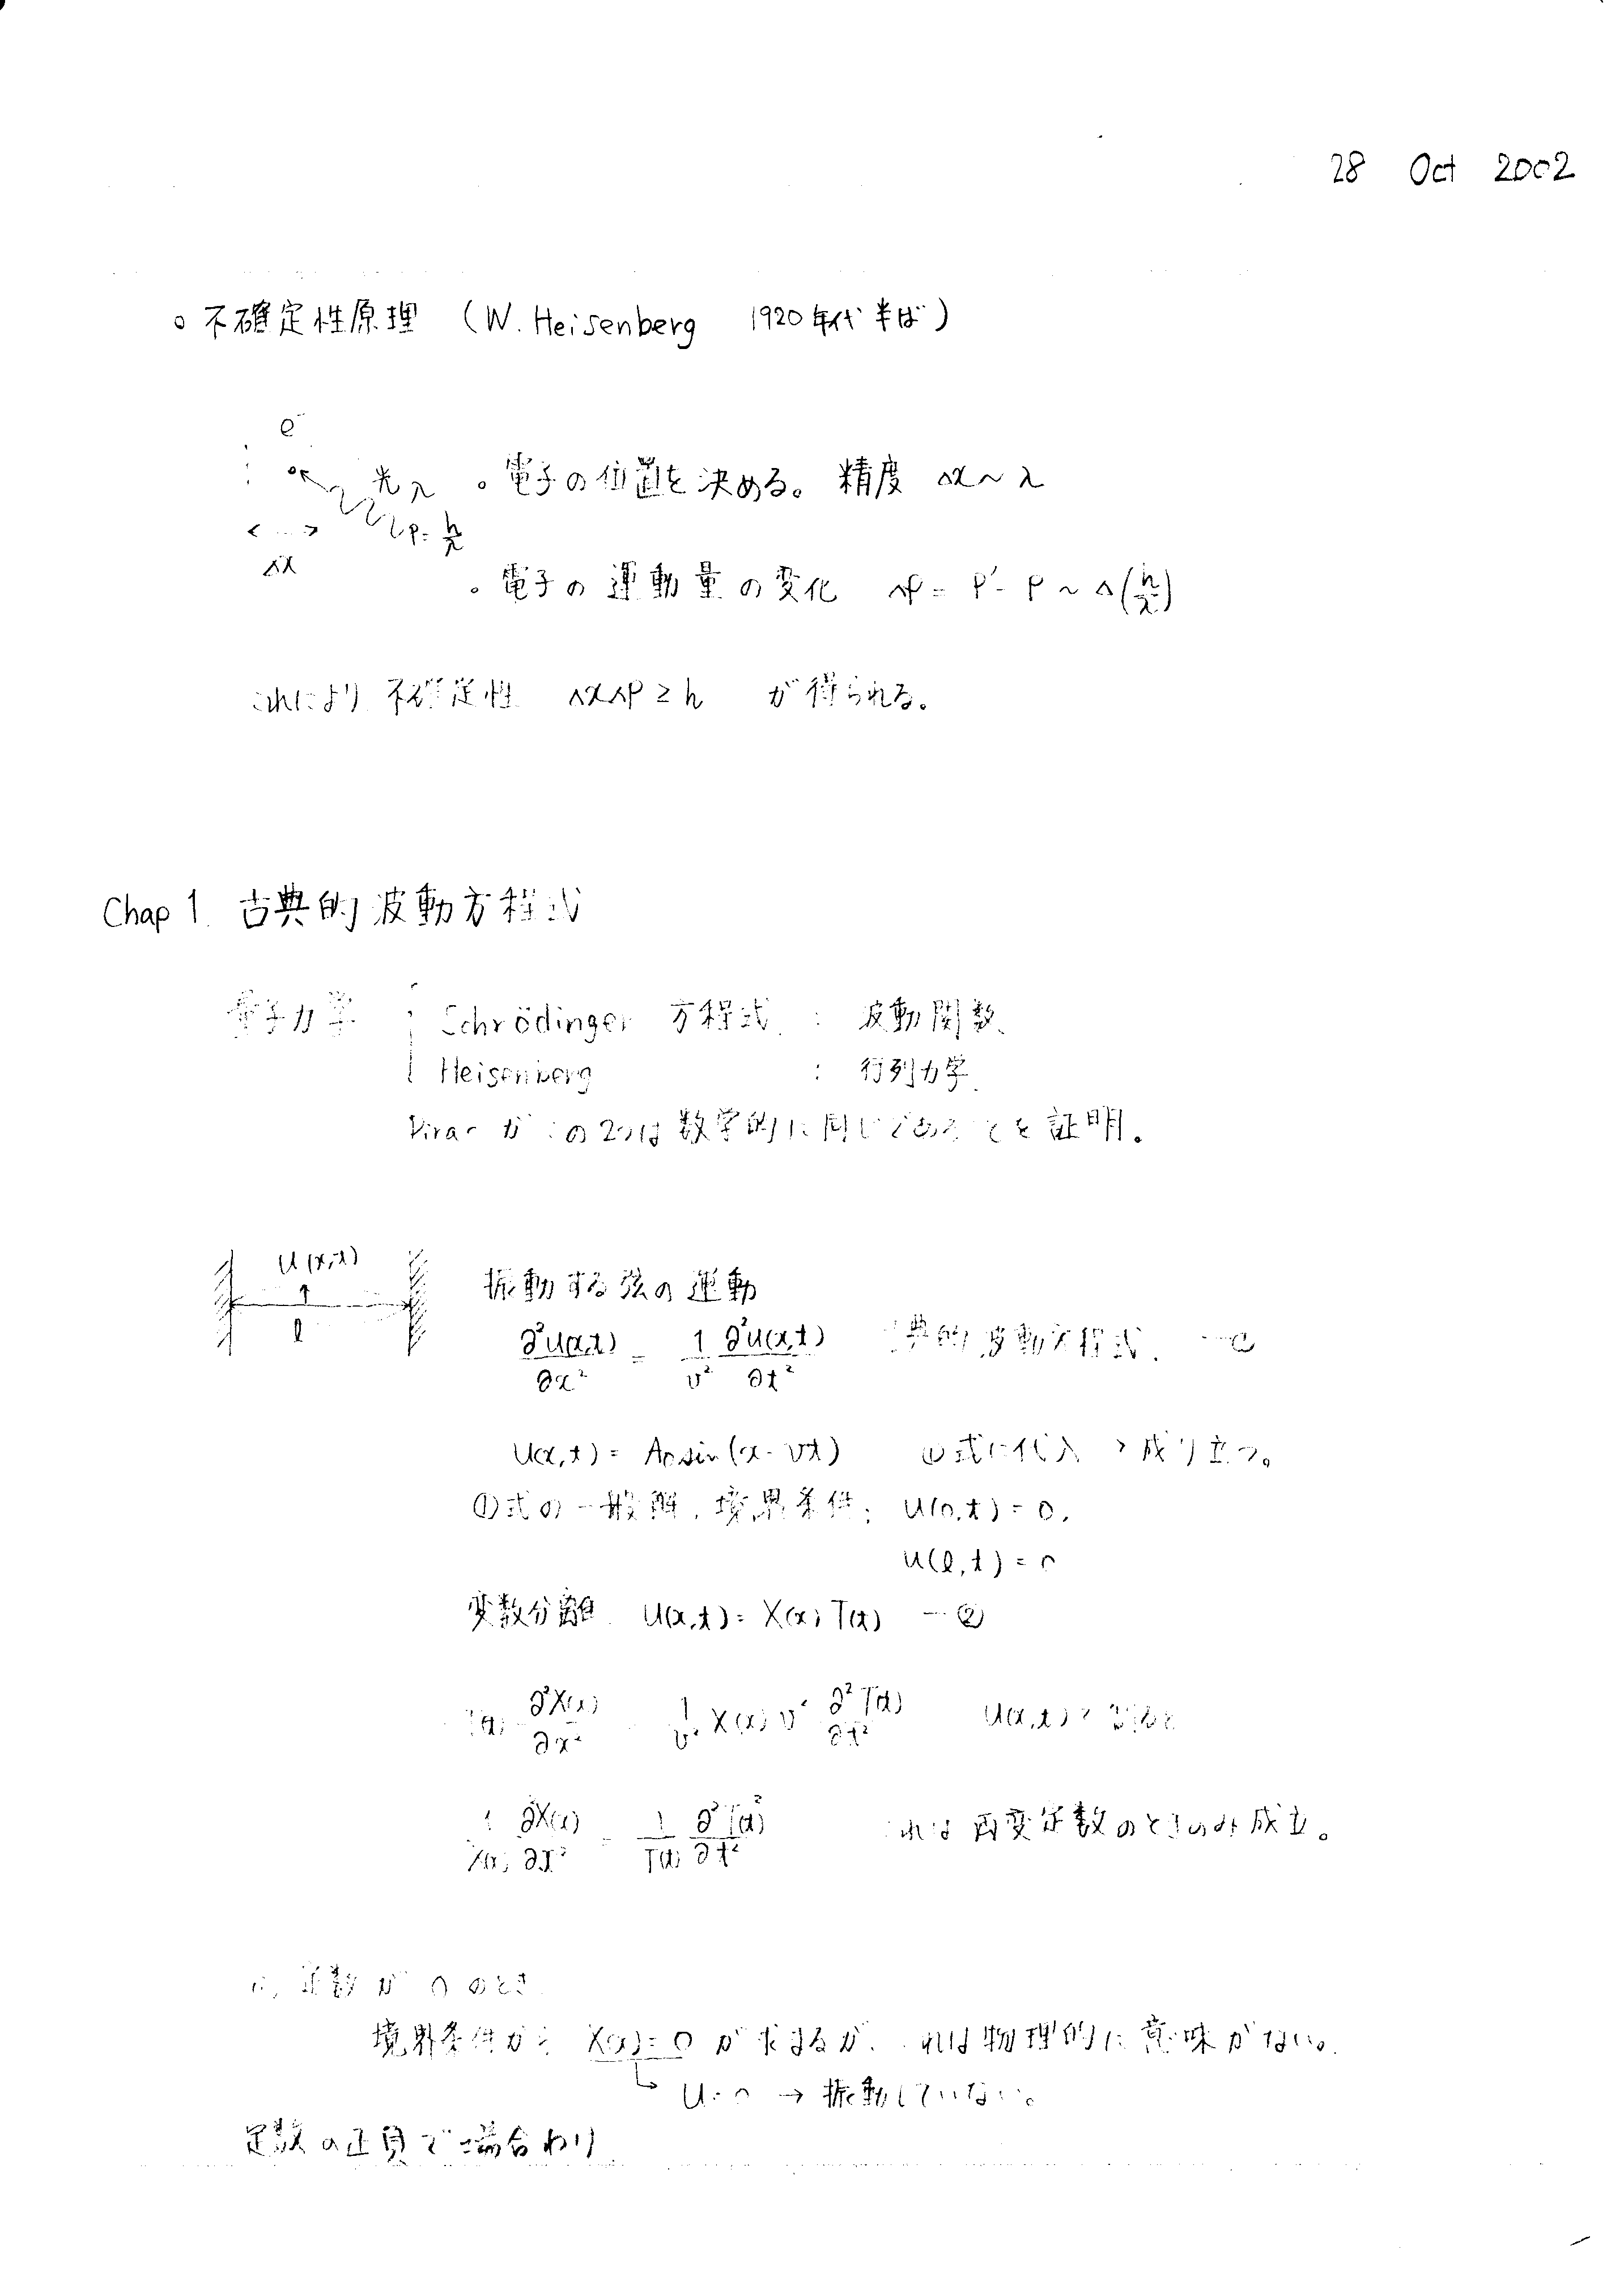 28 Oct 2002
○ 不確定性原理 (W. Heisenberg 1920年代半ば)
e⁻
光 λ
p = h/λ
Δx
。電子の位置を決める。 精度 Δx ~ λ
。電子の運動量の変化 Δp = p' - p ~ Δ(h/λ)
これにより 不確定性 ΔxΔp ≥ h が得られる。
Chap 1. 古典的波動方程式
量子力学 { Schrödinger 方程式 : 波動関数
Heisenberg : 行列力学
Dirac がこの2つは数学的に同じであることを証明。
u(x,t)
l
振動する弦の運動
∂²u(x,t)/∂x² = 1/v² ∂²u(x,t)/∂t² 古典的波動方程式. —①
u(x,t) = A₀sin(x - vt) ①式に代入 → 成り立つ。
①式の一般解, 境界条件; u(0,t) = 0,
u(l,t) = 0
変数分離 u(x,t) = X(x)T(t) —②
T(t) ∂²X(x)/∂x² = 1/v² X(x) v² ∂²T(t)/∂t² u(x,t)
1/X(x) ∂²X(x)/∂x² = 1/T(t) ∂²T(t)²/∂t² これは両変定数のときのみ成立。
定数が 0 のとき
境界条件から X(x) = 0 が求まるが、これは物理的に意味がない。
↳ u = 0 → 振動していない。
定数の正負で場合わけ